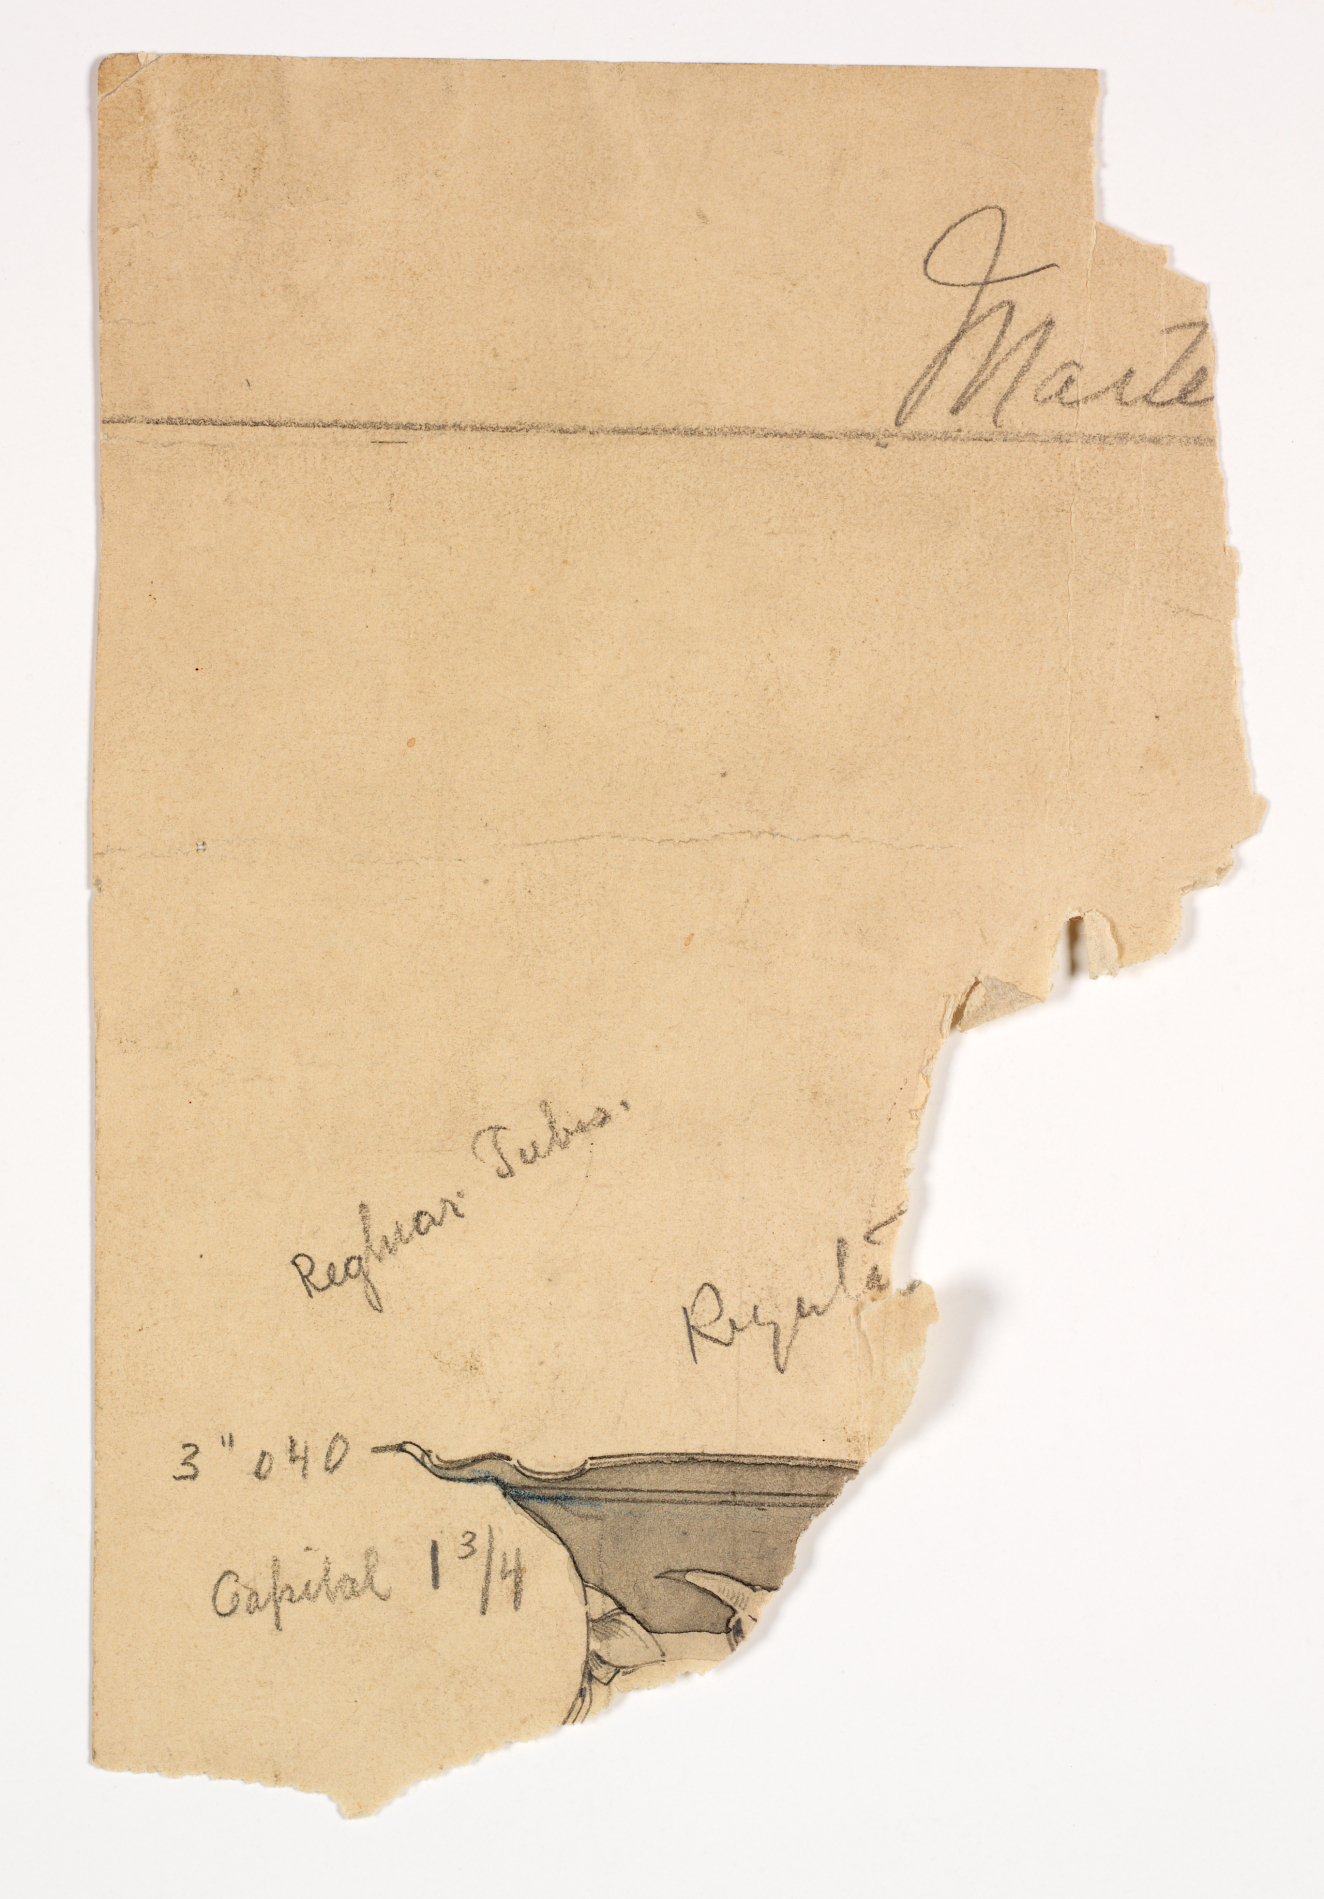 Marte
Regluar Tubes.
Regula
3" 040
Capital 1 3/4